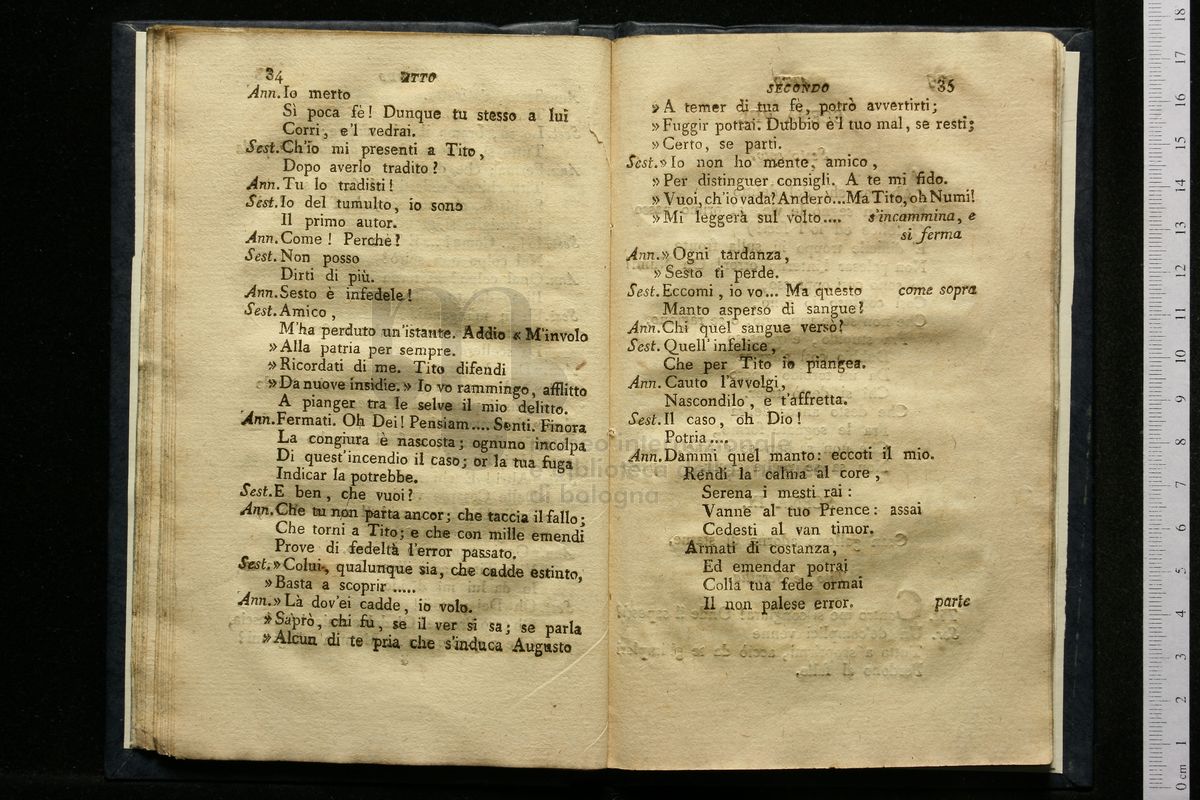 34 ATTO
Ann. Io merto
Sì poca fè! Dunque tu stesso a lui
Corri, e'l vedrai.
Sest. Ch'io mi presenti a Tito,
Dopo averlo tradito?
Ann. Tu lo tradisti!
Sest. Io del tumulto, io sono
Il primo autor.
Ann. Come! Perchè?
Sest. Non posso
Dirti di più.
Ann. Sesto è infedele!
Sest. Amico,
M'ha perduto un'istante. Addio « M'involo
» Alla patria per sempre.
» Ricordati di me. Tito difendi
» Da nuove insidie. » Io vo rammingo, afflitto
A pianger tra le selve il mio delitto.
Ann. Fermati. Oh Dei! Pensiam.... Senti. Finora
La congiura è nascosta; ognuno incolpa
Di quest'incendio il caso; or la tua fuga
Indicar la potrebbe.
Sest. E ben, che vuoi?
Ann. Che tu non parta ancor; che taccia il fallo;
Che torni a Tito; e che con mille emendi
Prove di fedeltà l'error passato.
Sest. » Colui, qualunque sia, che cadde estinto,
» Basta a scoprir .....
Ann. » Là dov'ei cadde, io volo.
» Saprò, chi fu, se il ver si sa; se parla
» Alcun di te pria che s'induca Augusto
SECONDO 35
» A temer di tua fè, potrò avvertirti;
» Fuggir potrai. Dubbio è'l tuo mal, se resti;
» Certo, se parti.
Sest. » Io non ho mente, amico,
» Per distinguer consigli. A te mi fido.
» Vuoi, ch'io vada? Anderò... Ma Tito, oh Numi!
» Mi leggerà sul volto.... s'incammina, e
si ferma
Ann. » Ogni tardanza,
» Sesto ti perde.
Sest. Eccomi, io vo... Ma questo come sopra
Manto asperso di sangue?
Ann. Chi quel sangue versò?
Sest. Quell' infelice,
Che per Tito io piangea.
Ann. Cauto l'avvolgi,
Nascondilo, e t'affretta.
Sest. Il caso, oh Dio!
Potria....
Ann. Dammi quel manto: eccoti il mio.
Rendi la calma al core,
Serena i mesti rai:
Vanne al tuo Prence: assai
Cedesti al van timor.
Armati di costanza,
Ed emendar potrai
Colla tua fede ormai
Il non palese error. parte
museo internazionale
e biblioteca della musica
di bologna
0 cm 1 2 3 4 5 6 7 8 9 10 11 12 13 14 15 16 17 18